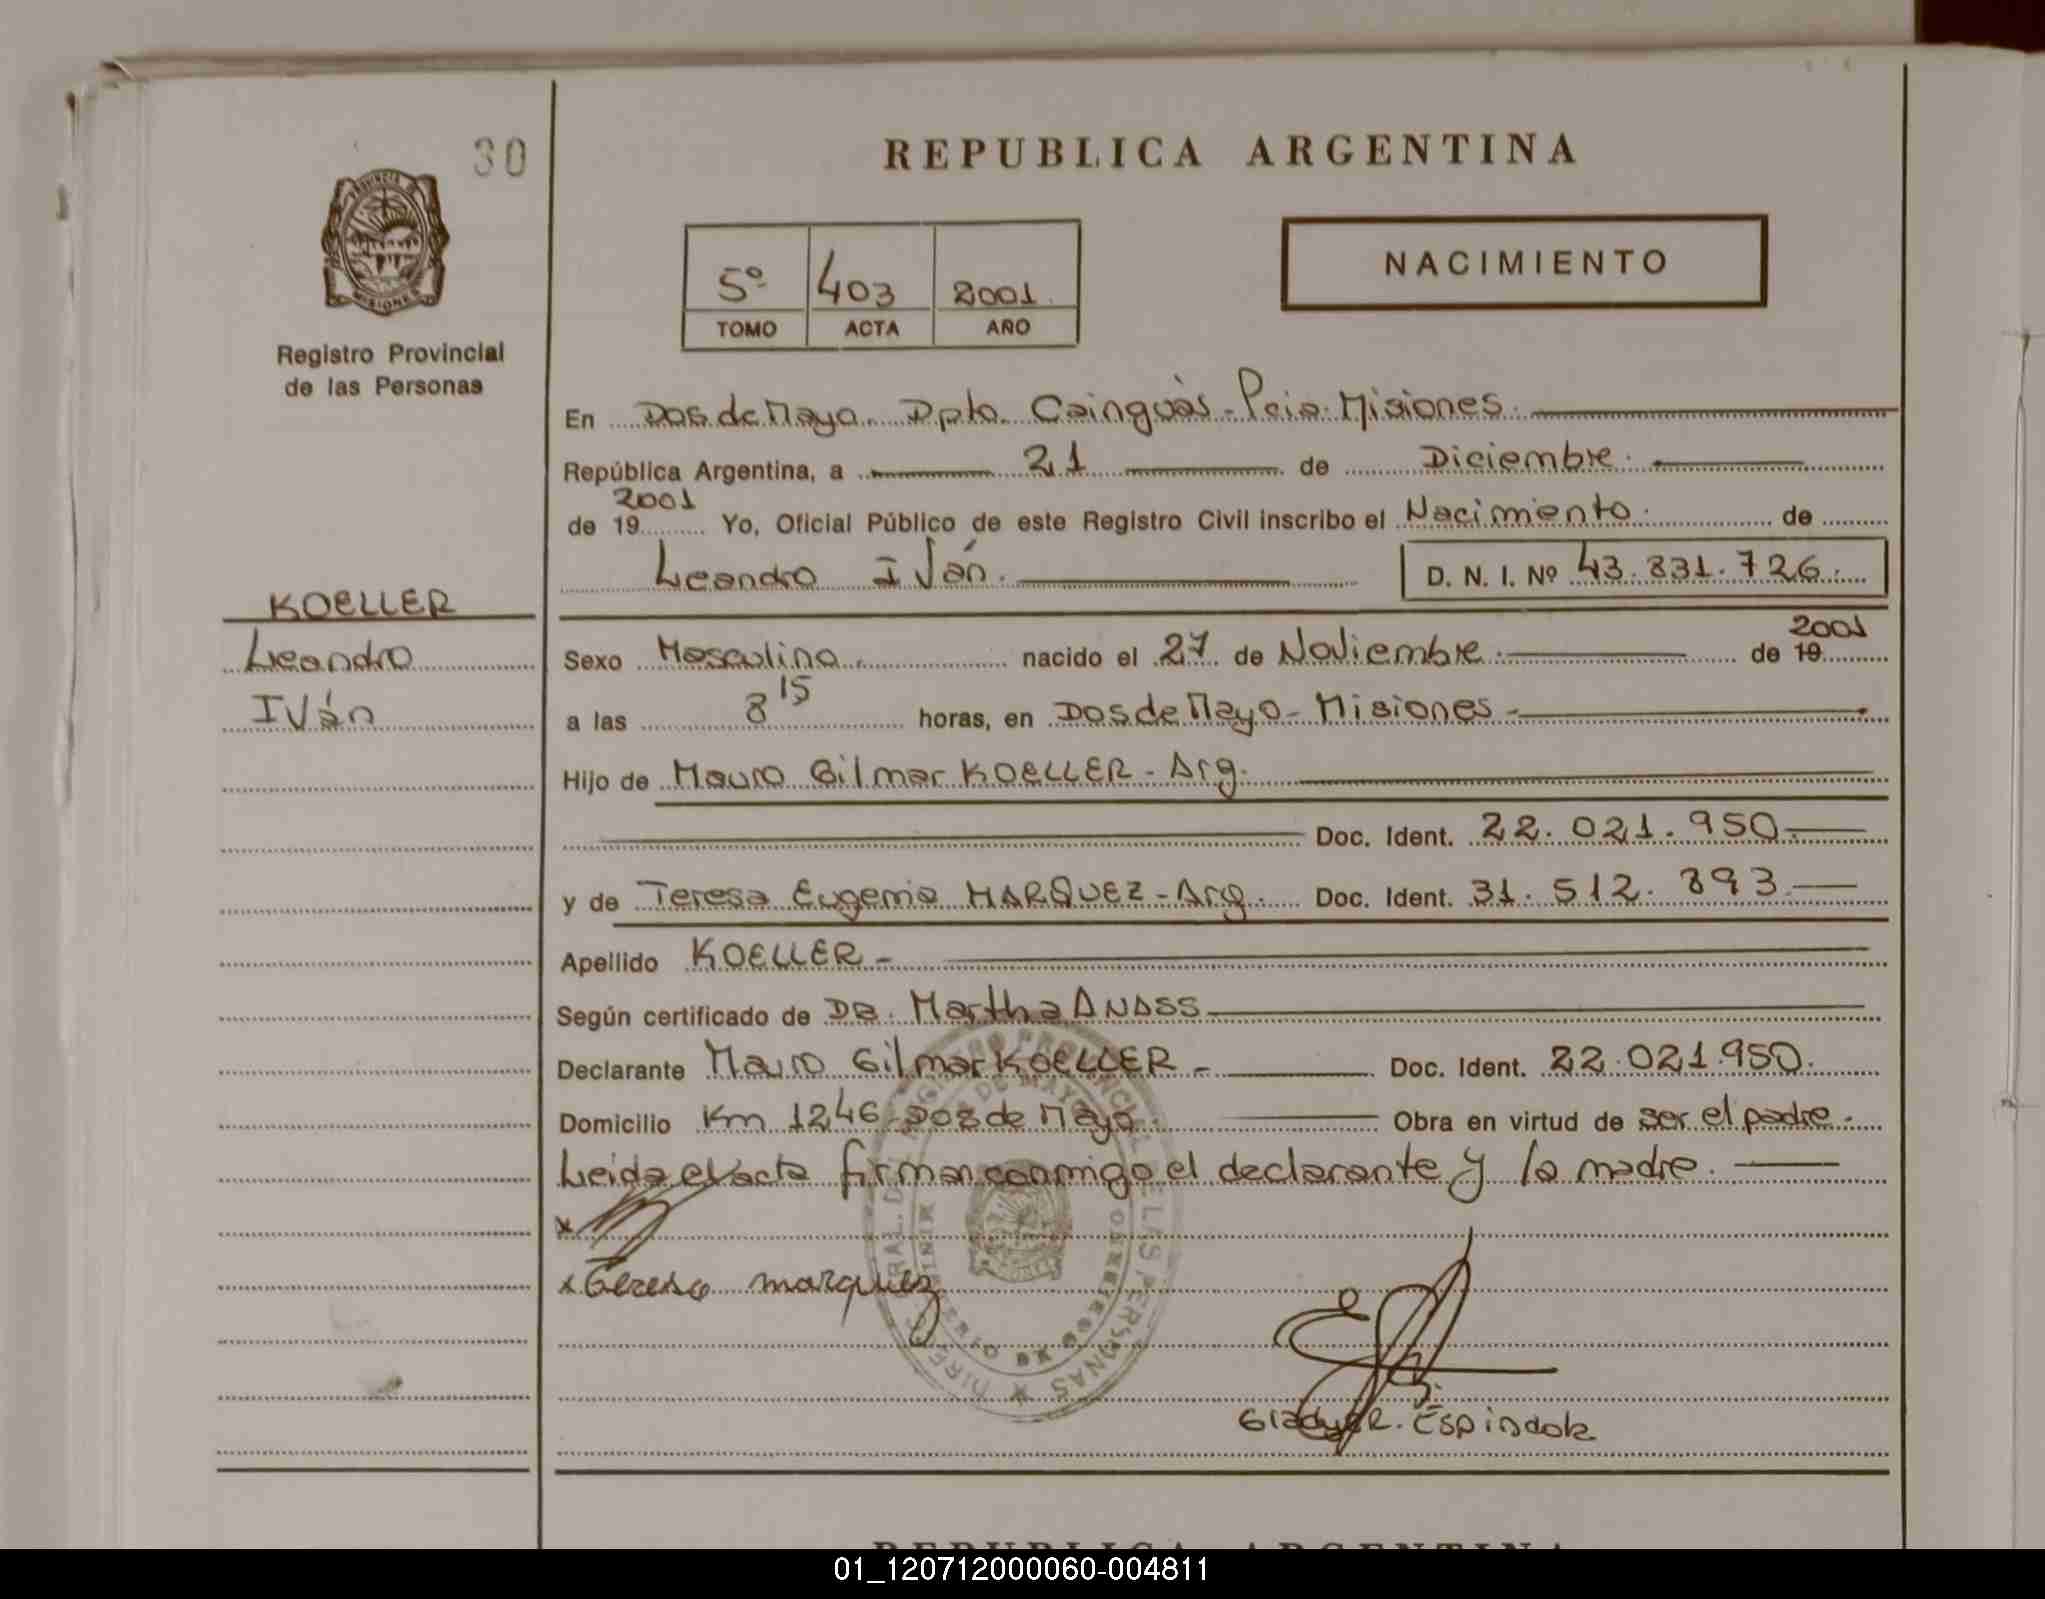 30
REPUBLICA ARGENTINA
5º 403 2001
TOMO ACTA AÑO
NACIMIENTO
Registro Provincial
de las Personas
En Dos de Mayo. Dpto. Cainguás - Pcia. Misiones.
República Argentina, a 21 de Diciembre.
2001
de 19 Yo, Oficial Público de este Registro Civil inscribo el Nacimiento. de
Leandro Iván. D. N. I. Nº 43.831.726.
KOELLER
Leandro
Iván
2001
Sexo Masculino. nacido el 27 de Noviembre. de 19
a las 8 15 horas, en Dos de Mayo - Misiones -
Hijo de Mauro Gilmar KOELLER - Arg.
Doc. Ident. 22.021.950
y de Teresa Eugenia MARQUEZ - Arg. Doc. Ident. 31.512.893
Apellido KOELLER -
Según certificado de Da. Martha ANASS
Declarante Mauro Gilmar KOELLER - Doc. Ident. 22.021.950.
Domicilio Km 1246 - Dos de Mayo. Obra en virtud de ser el padre.
Leida el acta firman conmigo el declarante y la madre.
x
x Teresa marquez
Gladys R. Espindola
REPUBLICA ARGENTINA
01_120712000060-004811